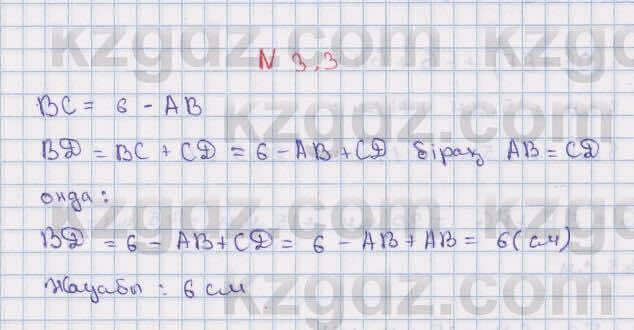 N 3.3
BC = 6 - AB
BD = BC + CD = 6 - AB + CD бірақ AB = CD
онда:
BD = 6 - AB + CD = 6 - AB + AB = 6 (см)
Жауабы: 6 см
kzgdz.com
kzgdz.com
kzgdz.com
kzgdz.com